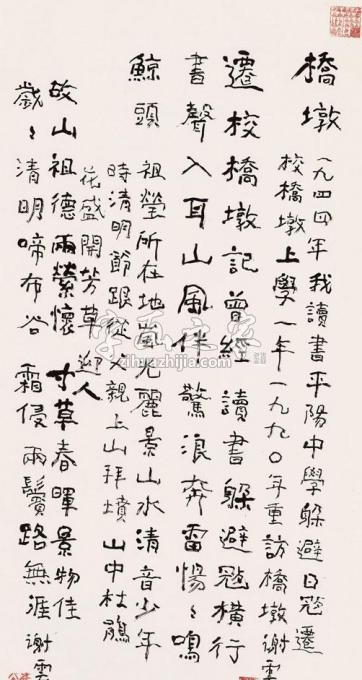 橋墩 一九四四年我讀書平陽中學躲避日寇遷
校橋墩上學一年一九九〇年重訪橋墩謝雲
遷校橋墩記曾經讀書躲避寇橫行
書聲入耳山風伴驚浪奔雷惕〻鳴
鯨頭 祖塋所在地嵐光麗景山水清音少年
時清明節跟從父親上山拜墳山中杜鵑
花盛開芳草迎人
故山祖德兩縈懷寸草春暉景物佳
歲〻清明啼布谷霜侵兩鬢路無涯謝雲
字画之家
zihuazhijia.com